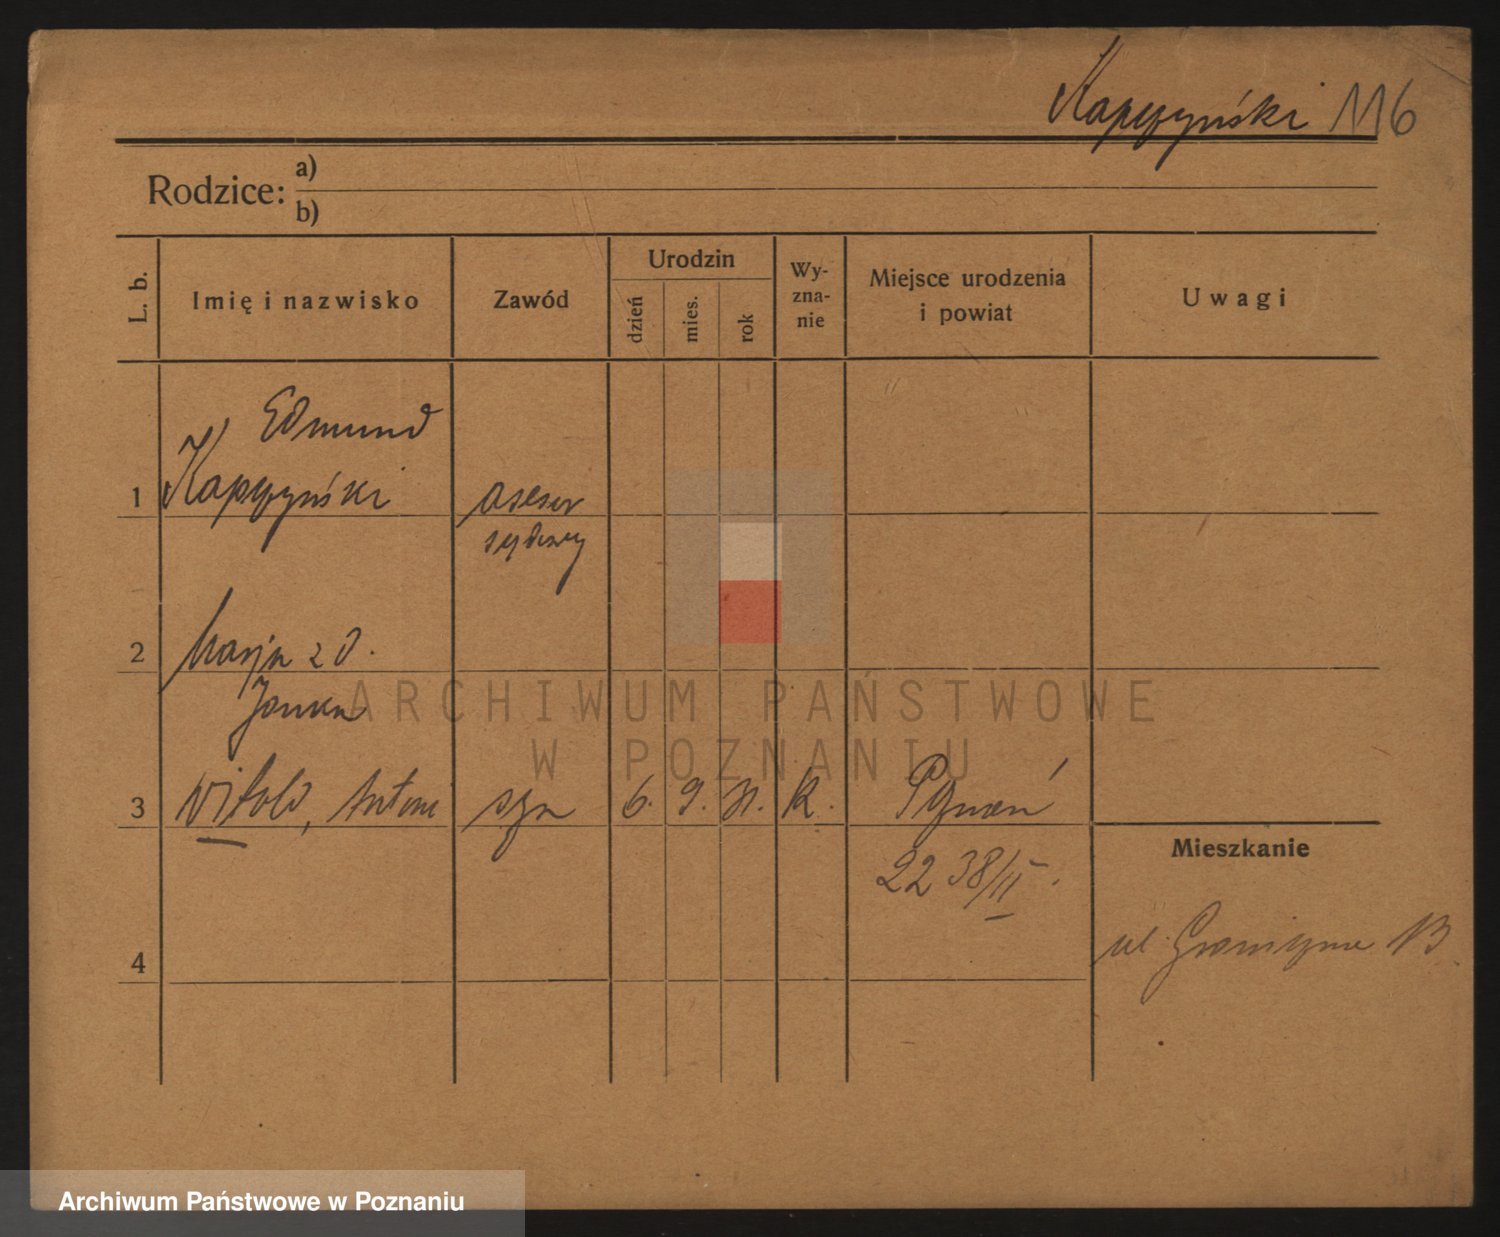 Kapczyński 116
Rodzice: a)
b)
L. b.
Imię i nazwisko
Zawód
Urodzin
dzień
mies.
rok
Wy-
zna-
nie
Miejsce urodzenia
i powiat
Uwagi
Edmund
1 Kapczyński asesor
sądowy
2 Marja z d.
Janka
3 Witold, Antoni syn 6. 9. 31. k. Poznań
Mieszkanie
22 38/II
ul. Graniczna 13
4
ARCHIWUM PAŃSTWOWE
W POZNANIU
Archiwum Państwowe w Poznaniu